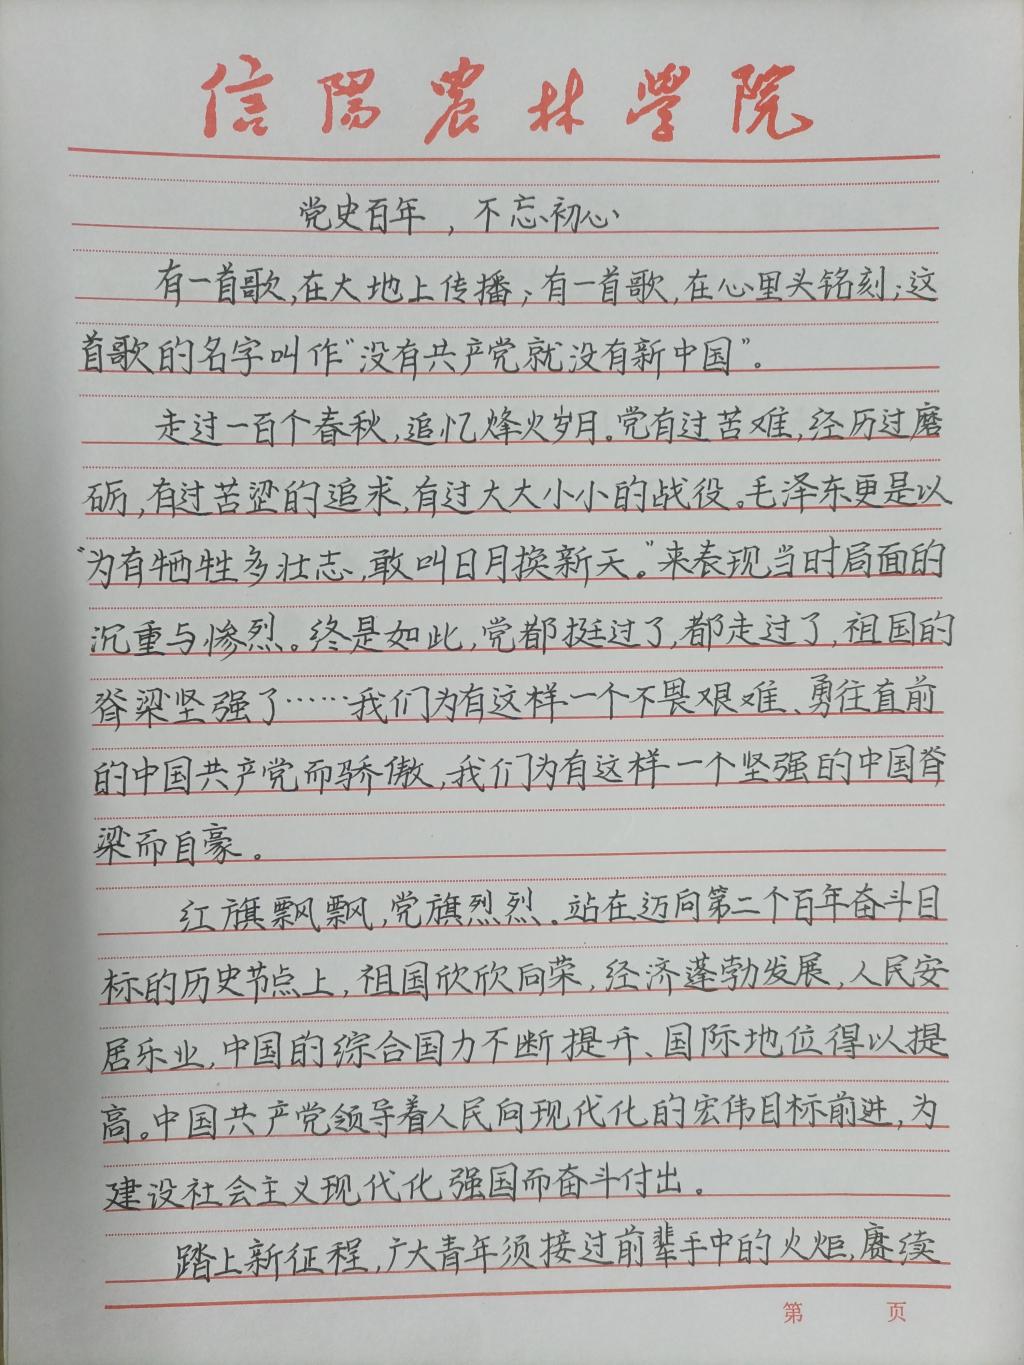 信阳农林学院
党史百年，不忘初心
有一首歌，在大地上传播；有一首歌，在心里头铭刻；这
首歌的名字叫作“没有共产党就没有新中国”。
走过一百个春秋，追忆烽火岁月。党有过苦难，经历过磨
砺，有过苦涩的追求，有过大大小小的战役。毛泽东更是以
“为有牺牲多壮志，敢叫日月换新天。”来表现当时局面的
沉重与惨烈。终是如此，党都挺过了，都走过了，祖国的
脊梁坚强了……我们为有这样一个不畏艰难、勇往直前
的中国共产党而骄傲，我们为有这样一个坚强的中国脊
梁而自豪。
红旗飘飘，党旗烈烈。站在迈向第二个百年奋斗目
标的历史节点上，祖国欣欣向荣，经济蓬勃发展，人民安
居乐业，中国的综合国力不断提升、国际地位得以提
高。中国共产党领导着人民向现代化的宏伟目标前进，为
建设社会主义现代化强国而奋斗付出。
踏上新征程，广大青年须接过前辈手中的火炬，赓续
第 页